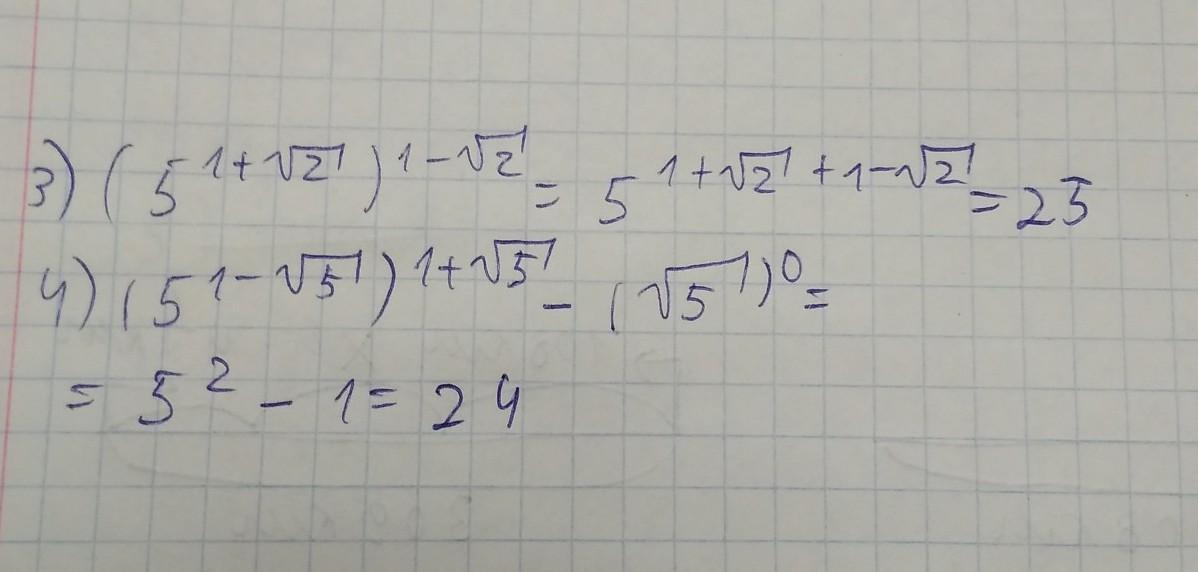 3) (5^{1+√2})^{1-√2} = 5^{1+√2+1-√2} = 25
4) (5^{1-√5})^{1+√5} - (√5)^0 =
= 5^2 - 1 = 24